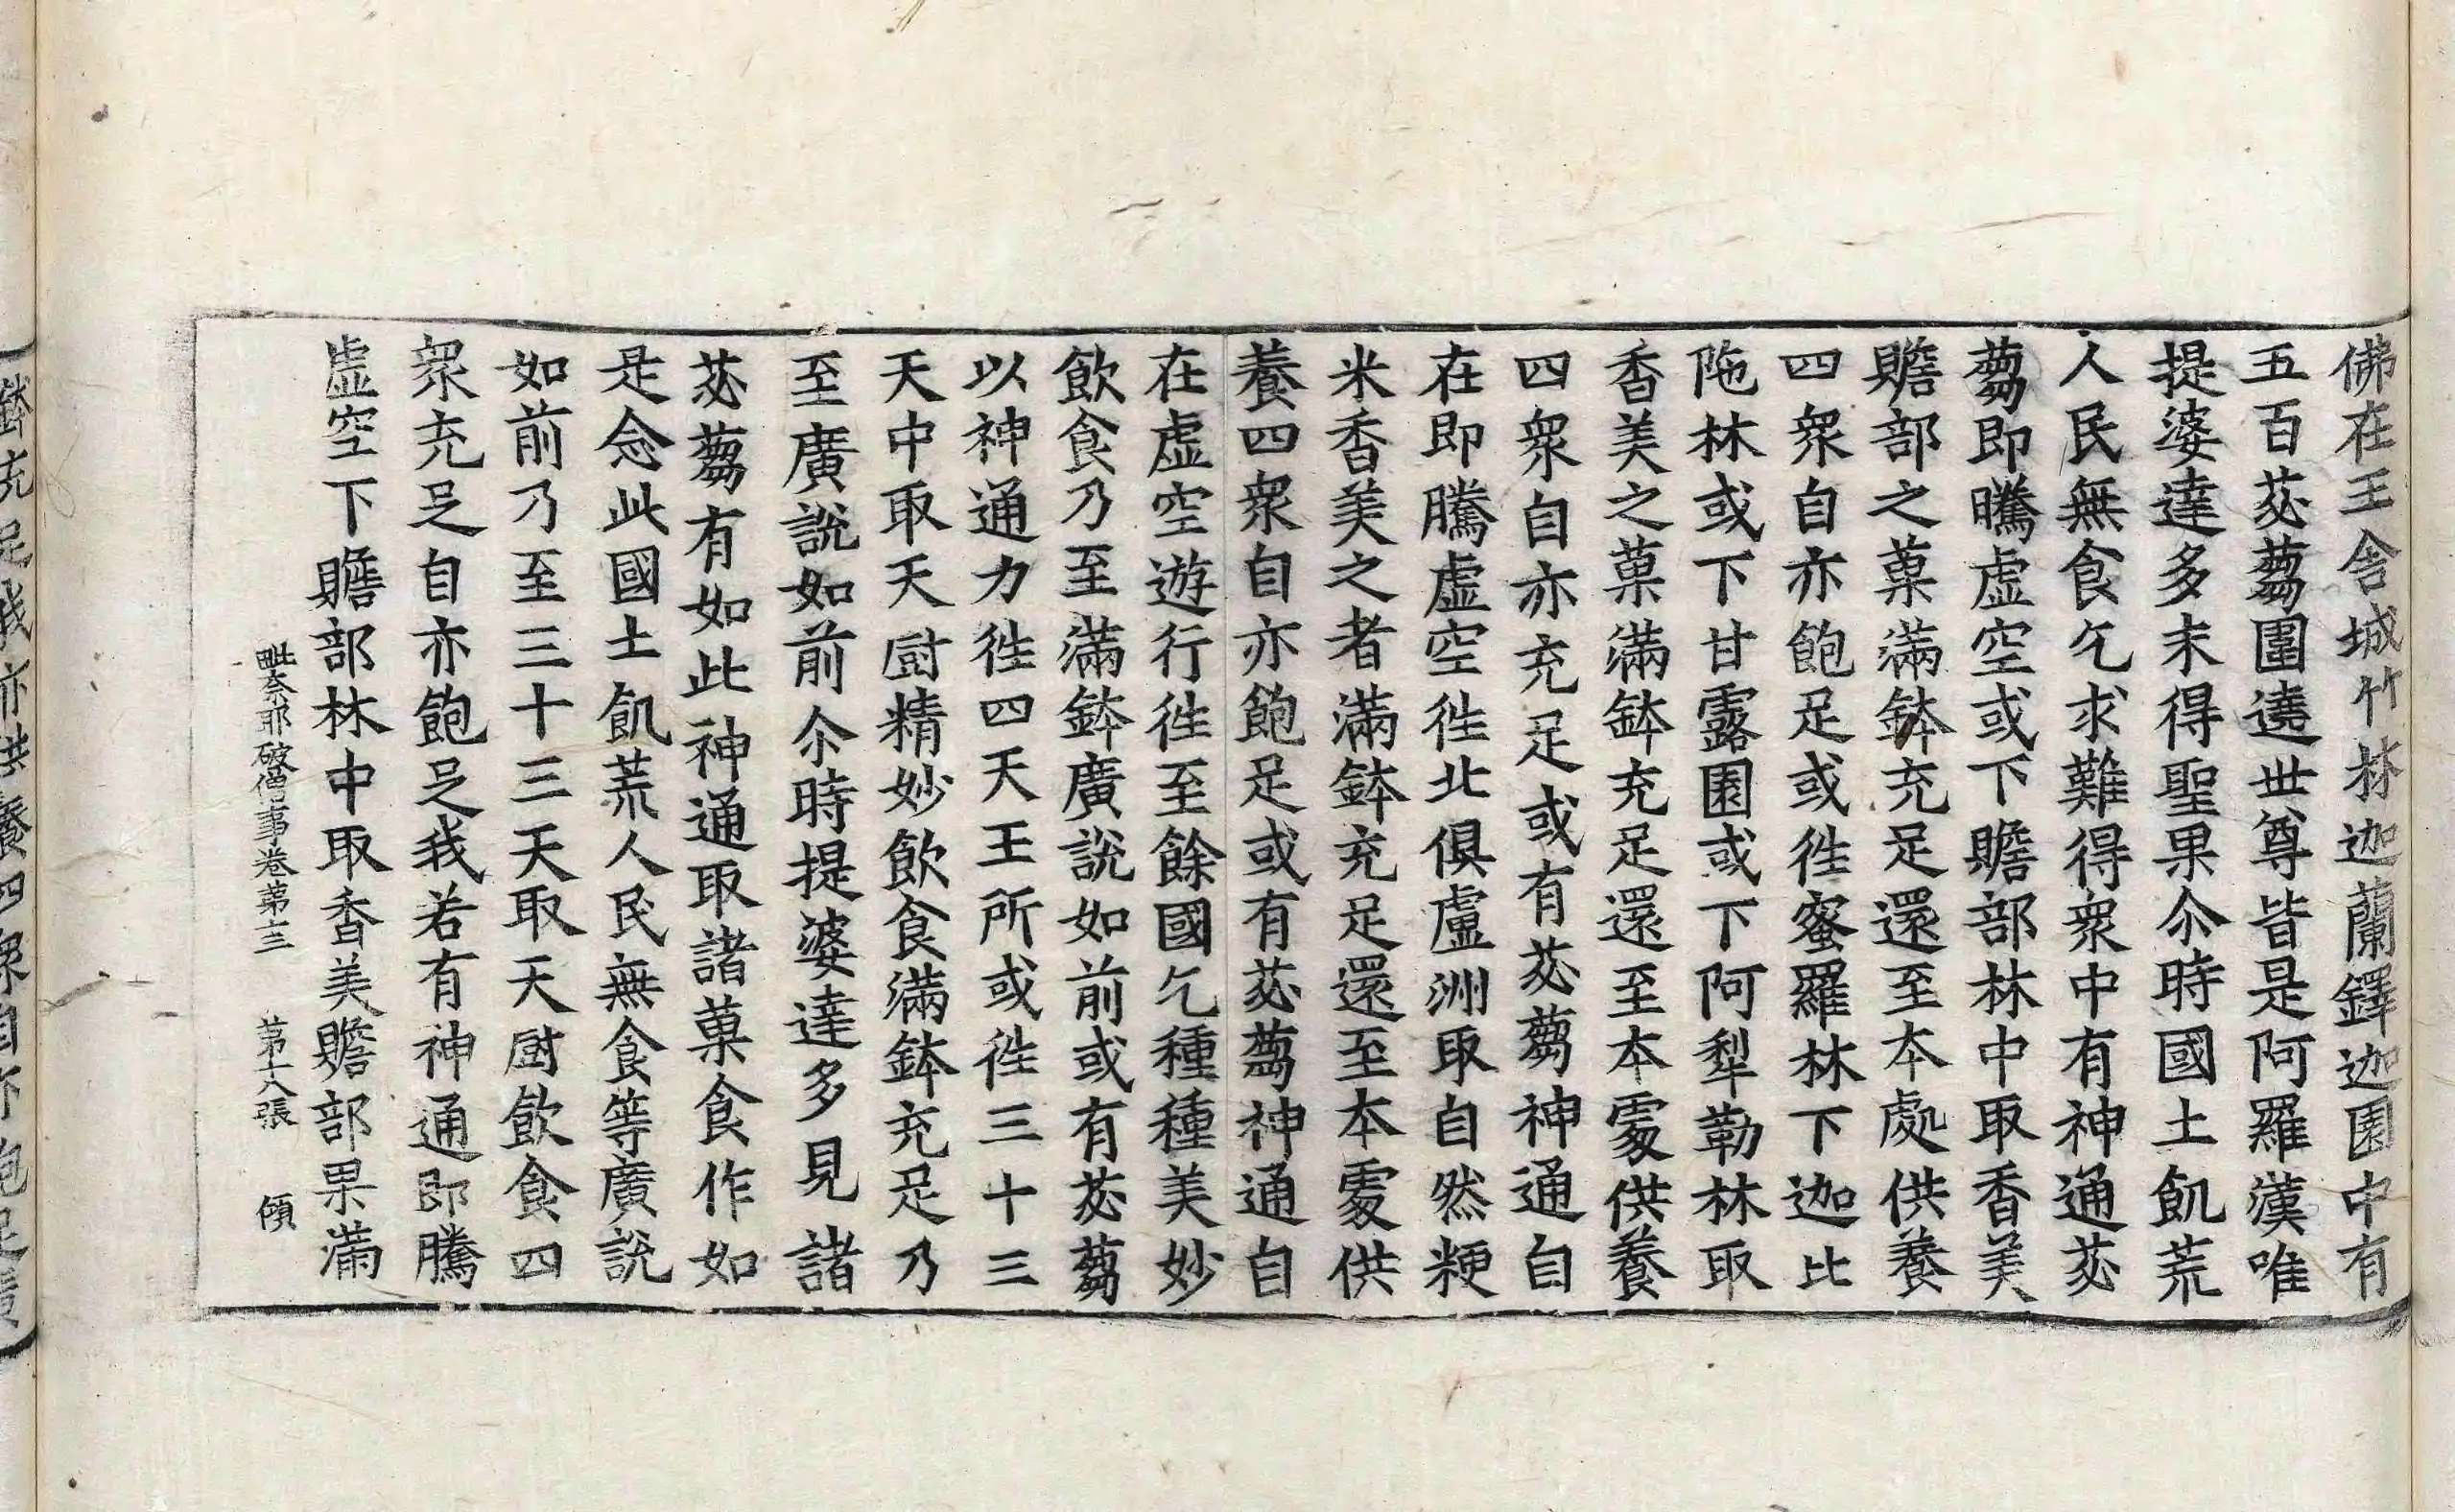 佛在王舍城竹林迦蘭鐸迦園中有
五百苾蒭圍遶世尊皆是阿羅漢唯
提婆達多未得聖果尒時國土飢荒
人民無食乞求難得衆中有神通苾
蒭即騰虛空或下贍部林中取香美
贍部之菓滿鉢充足還至本處供養
四衆自亦飽足或徃蜜羅林下迦比
陁林或下甘露園或下阿犁勒林取
香美之菓滿鉢充足還至本處供養
四衆自亦充足或有苾蒭神通自
在即騰虛空徃北俱盧洲取自然粳
米香美之者滿鉢充足還至本處供
養四衆自亦飽足或有苾蒭神通自
在虛空遊行徃至餘國乞種種美妙
飲食乃至滿鉢廣說如前或有苾蒭
以神通力徃四天王所或徃三十三
天中取天厨精妙飲食滿鉢充足乃
至廣說如前尒時提婆達多見諸
苾蒭有如此神通取諸菓食作如
是念此國土飢荒人民無食等廣說
如前乃至三十三天取天厨飲食四
衆充足自亦飽足我若有神通即騰
虛空下贍部林中取香美贍部果滿
毗奈耶破僧事卷第十三 第十八張 傾
鉢充足我亦供養四衆自亦飽足廣